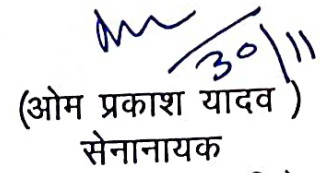 30/11
(ओम प्रकाश यादव )
सेनानायक